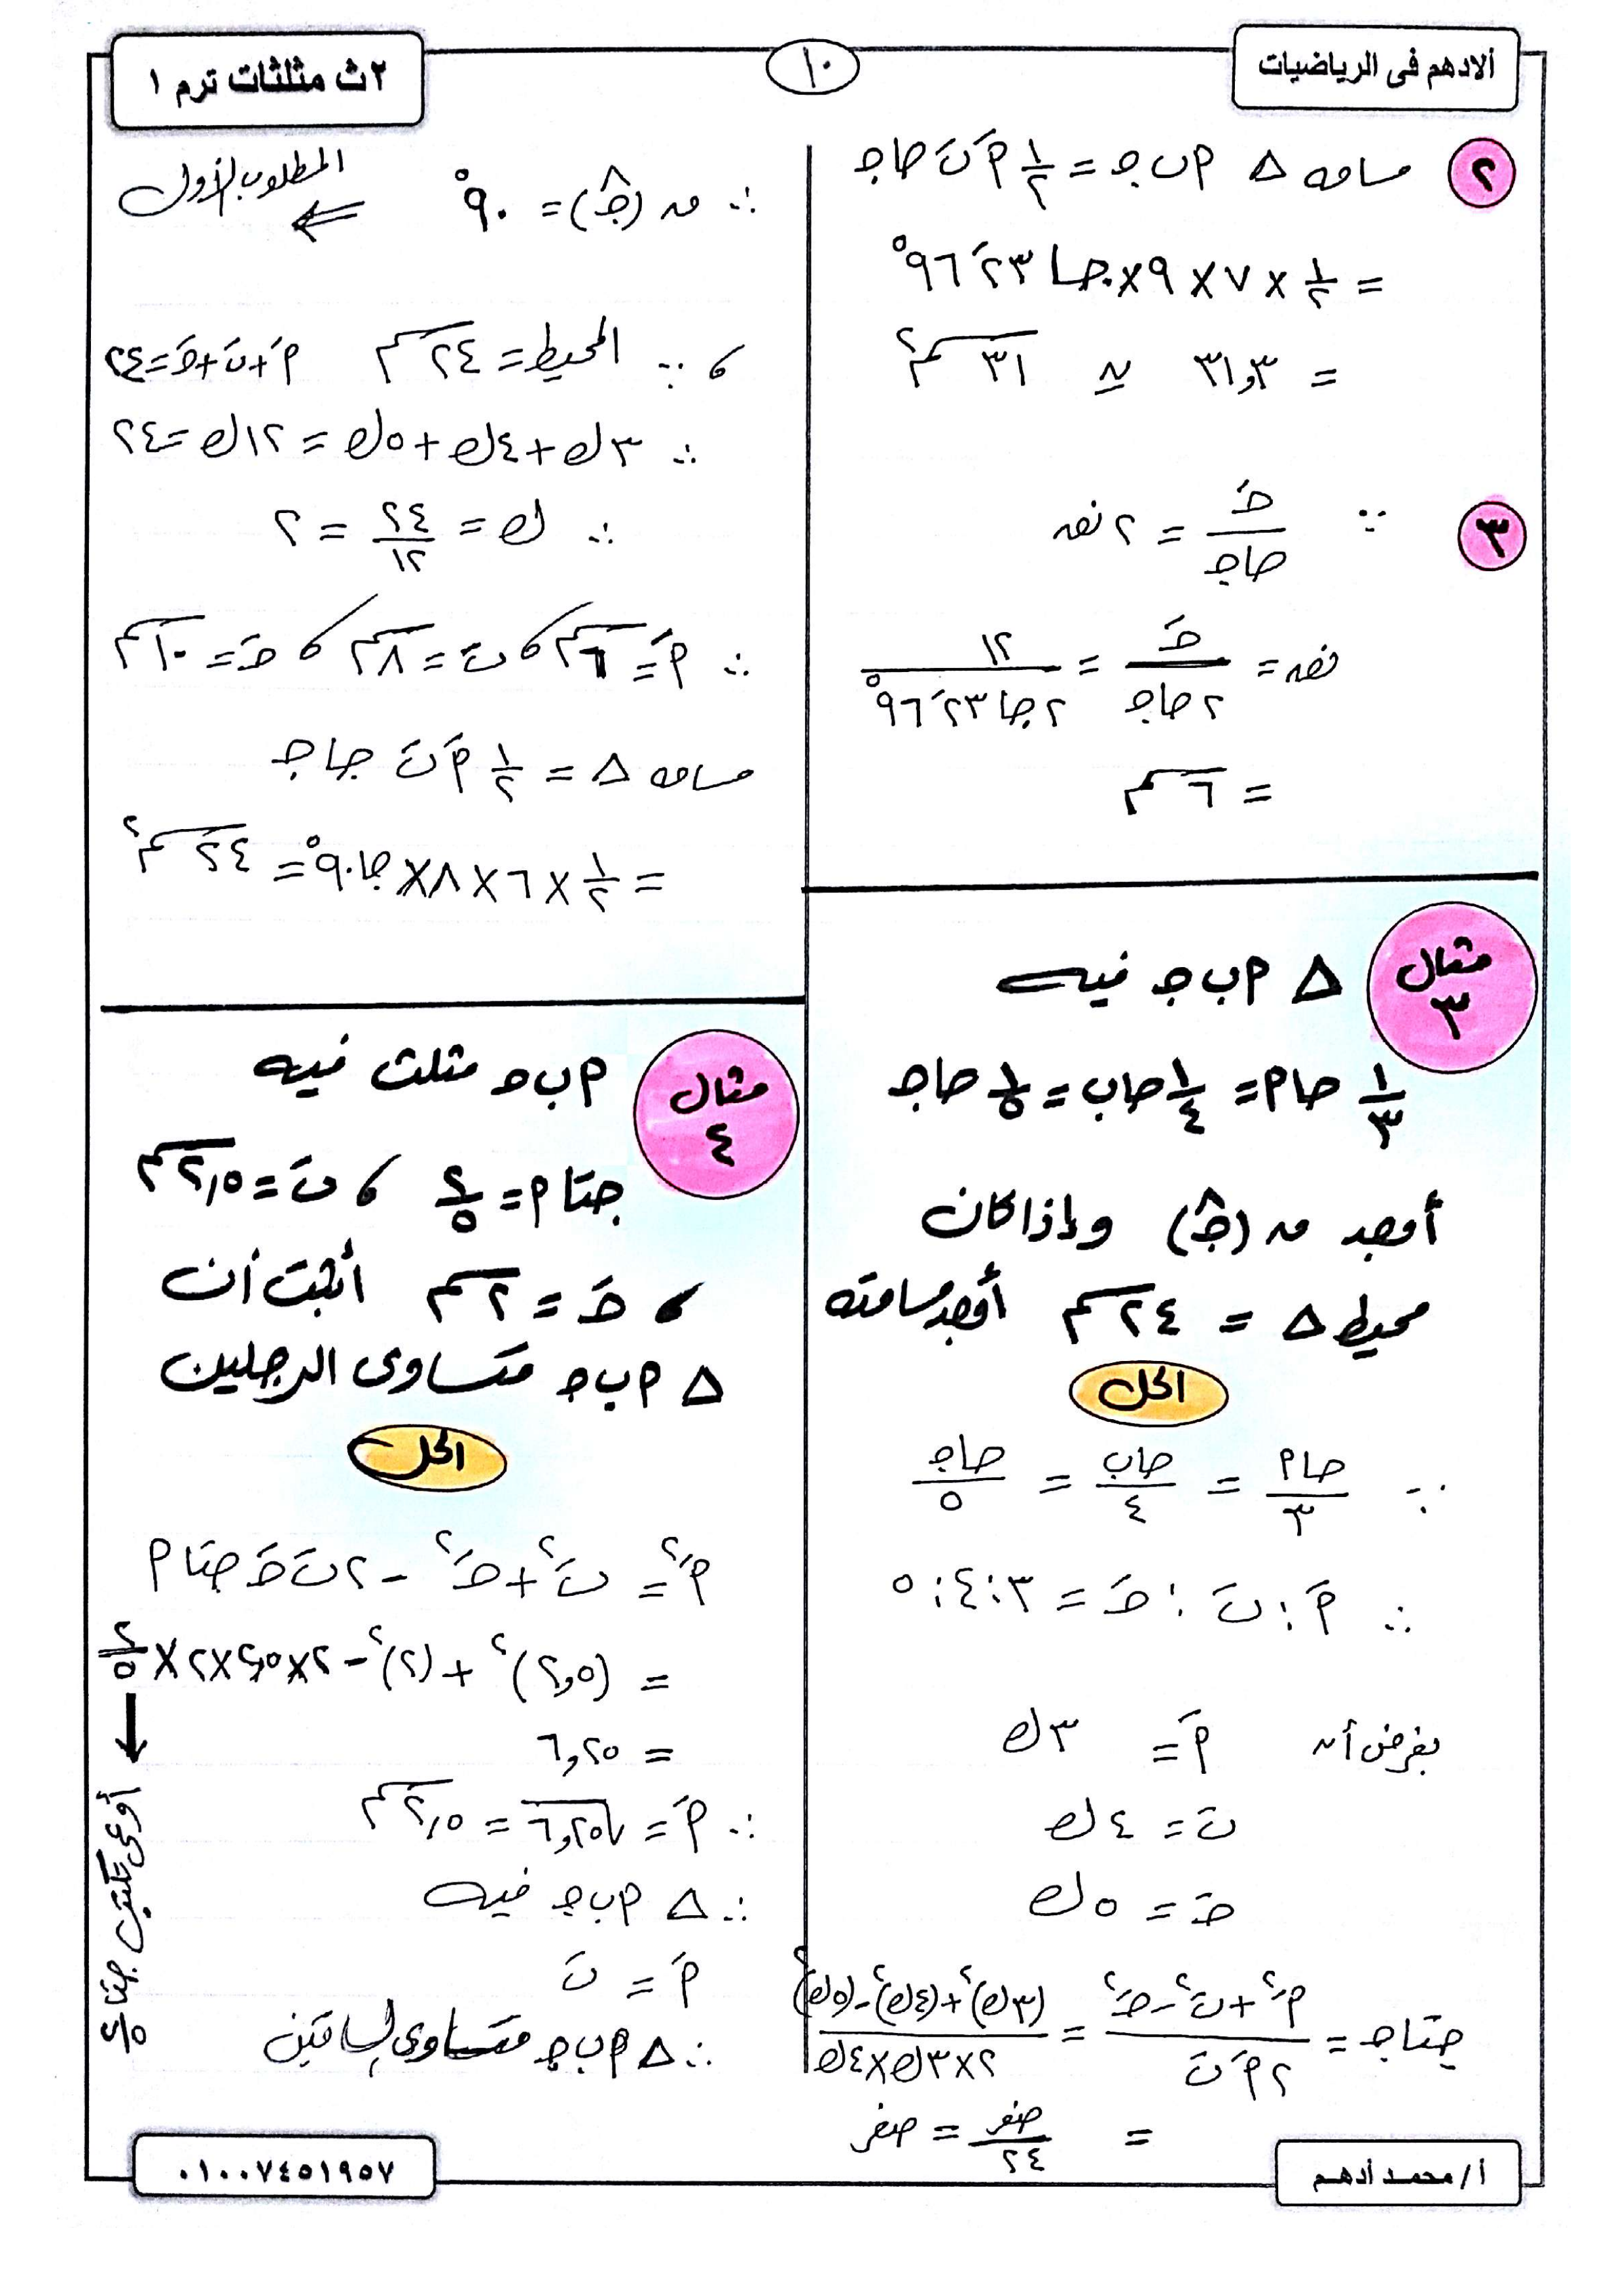 ألادهم فى الرياضيات
١٠
٢ث مثلثات ترم ١
٢ مساحة △ م ب جـ = ١/٢ مَ بَ جا جـ
= ١/٢ × ٧ × ٩ × جا ٢٣ َ ٩٦°
= ٣١٫٣ ≃ ٣١ سم٢
٣ ∵ جـَ / جا جـ = ٢ نق
نق = جـَ / ٢ جا جـ = ١٢ / ٢ جا ٢٣ َ ٩٦°
= ٦ سم
مثال ٣ △ م ب جـ فيه
١/٣ جا م = ١/٤ جا ب = ١/٥ جا جـ
أوجد ق (جـ^) وإذا كان
محيط △ = ٢٤ سم أوجد مساحته
الحل
∵ جا م / ٣ = جا ب / ٤ = جا جـ / ٥
∴ مَ : بَ : جـَ = ٣ : ٤ : ٥
بفرض أن مَ = ٣ك
بَ = ٤ك
جـَ = ٥ك
جتا جـ = (مَ٢ + بَ٢ - جـَ٢) / ٢ مَ بَ = ((٣ك)٢ + (٤ك)٢ - (٥ك)٢) / ٢×٣ك×٤ك
= صفر / ٢٤ = صفر
∴ ق (جـ^) = ٩٠° المطلوب الأول
، ∵ المحيط = ٢٤ سم مَ + بَ + جـَ = ٢٤
∴ ٣ك + ٤ك + ٥ك = ١٢ك = ٢٤
∴ ك = ٢٤ / ١٢ = ٢
∴ مَ = ٦ سم ، بَ = ٨ سم ، جـَ = ١٠ سم
مساحة △ = ١/٢ مَ بَ جا جـ
= ١/٢ × ٦ × ٨ × جا ٩٠° = ٢٤ سم٢
مثال ٤ م ب جـ مثلث فيه
جتا م = ٢/٥ ، بَ = ٢,٥ سم
، جـَ = ٢ سم أثبت أن
△ م ب جـ متساوى الرجلين
الحل
مَ٢ = بَ٢ + جـَ٢ - ٢ بَ جـَ جتا م
= (٢,٥)٢ + (٢)٢ - ٢×٢,٥×٢×٢/٥
= ٦,٢٥
∴ مَ = √٦,٢٥ = ٢,٥ سم
∴ △ م ب جـ فيه
مَ = بَ
∴ △ م ب جـ متساوى الساقين
أوعى تكتب جتا ٢/٥
أ / محمـد أدهـم
٠١٠٠٧٤٥١٩٥٧